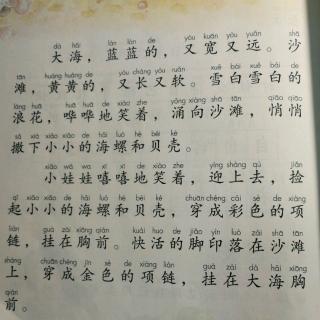 dà hǎi lán lán de yòu kuān yòu yuǎn shā
大海，蓝蓝的，又宽又远。沙
tān huáng huáng de yòu cháng yòu ruǎn xuě bái xuě bái de
滩，黄黄的，又长又软。雪白雪白的
làng huā huā huā de xiào zhe yǒng xiàng shā tān qiāo qiāo
浪花，哗哗地笑着，涌向沙滩，悄悄
sā xià xiǎo xiǎo de hǎi luó hé bèi ké
撒下小小的海螺和贝壳。
xiǎo wá wa xī xī de xiào zhe yíng shàng qù jiǎn
小娃娃嘻嘻地笑着，迎上去，捡
qǐ xiǎo xiǎo de hǎi luó hé bèi ké chuān chéng cǎi sè de xiàng
起小小的海螺和贝壳，穿成彩色的项
liàn guà zài xiōng qián kuài huo de jiǎo yìn luò zài shā tān
链，挂在胸前。快活的脚印落在沙滩
shàng chuān chéng jīn sè de xiàng liàn guà zài dà hǎi xiōng
上，穿成金色的项链，挂在大海胸
qián
前。